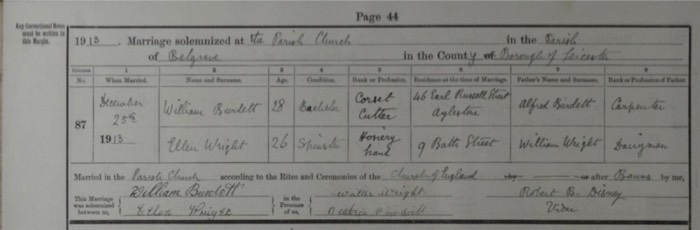 Page 44
Any Corrections/Notes must be written in this Margin.
1913. Marriage solemnized at the Parish Church in the Parish
of Belgrave in the County of Borough of Leicester
1 2 3 4 5 6 7 8
No. When Married. Name and Surname. Age. Condition. Rank or Profession. Residence at the time of Marriage. Father's Name and Surname. Rank or Profession of Father.
87
December 25th 1913
William Burdett 28 Bachelor Corset Cutter 46 Earl Russell Street Aylestone Alfred Burdett Carpenter
Ellen Wright 26 Spinster Hosiery hand 9 Bath Street William Wright Dairyman
Married in the Parish Church according to the Rites and Ceremonies of the Church of England by or after Banns by me,
This Marriage was solemnized between us,
William Burdett
Ellen Wright
in the Presence of us,
Walter Wright
Beatrice Burdett
Robert B. Disney
Vicar